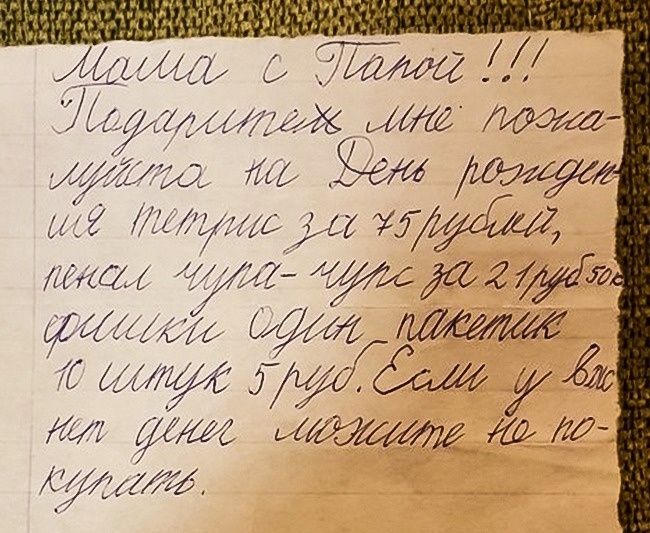 Мама с Папой!!!
Подарите мне пожа-
луйста на День рожден-
ия тетрис за 75 рублей,
пенал чупа-чупс за 21 руб 50к
фишки один пакетик
10 штук 5 руб. Если у вас
нет денег можите не по-
купать.